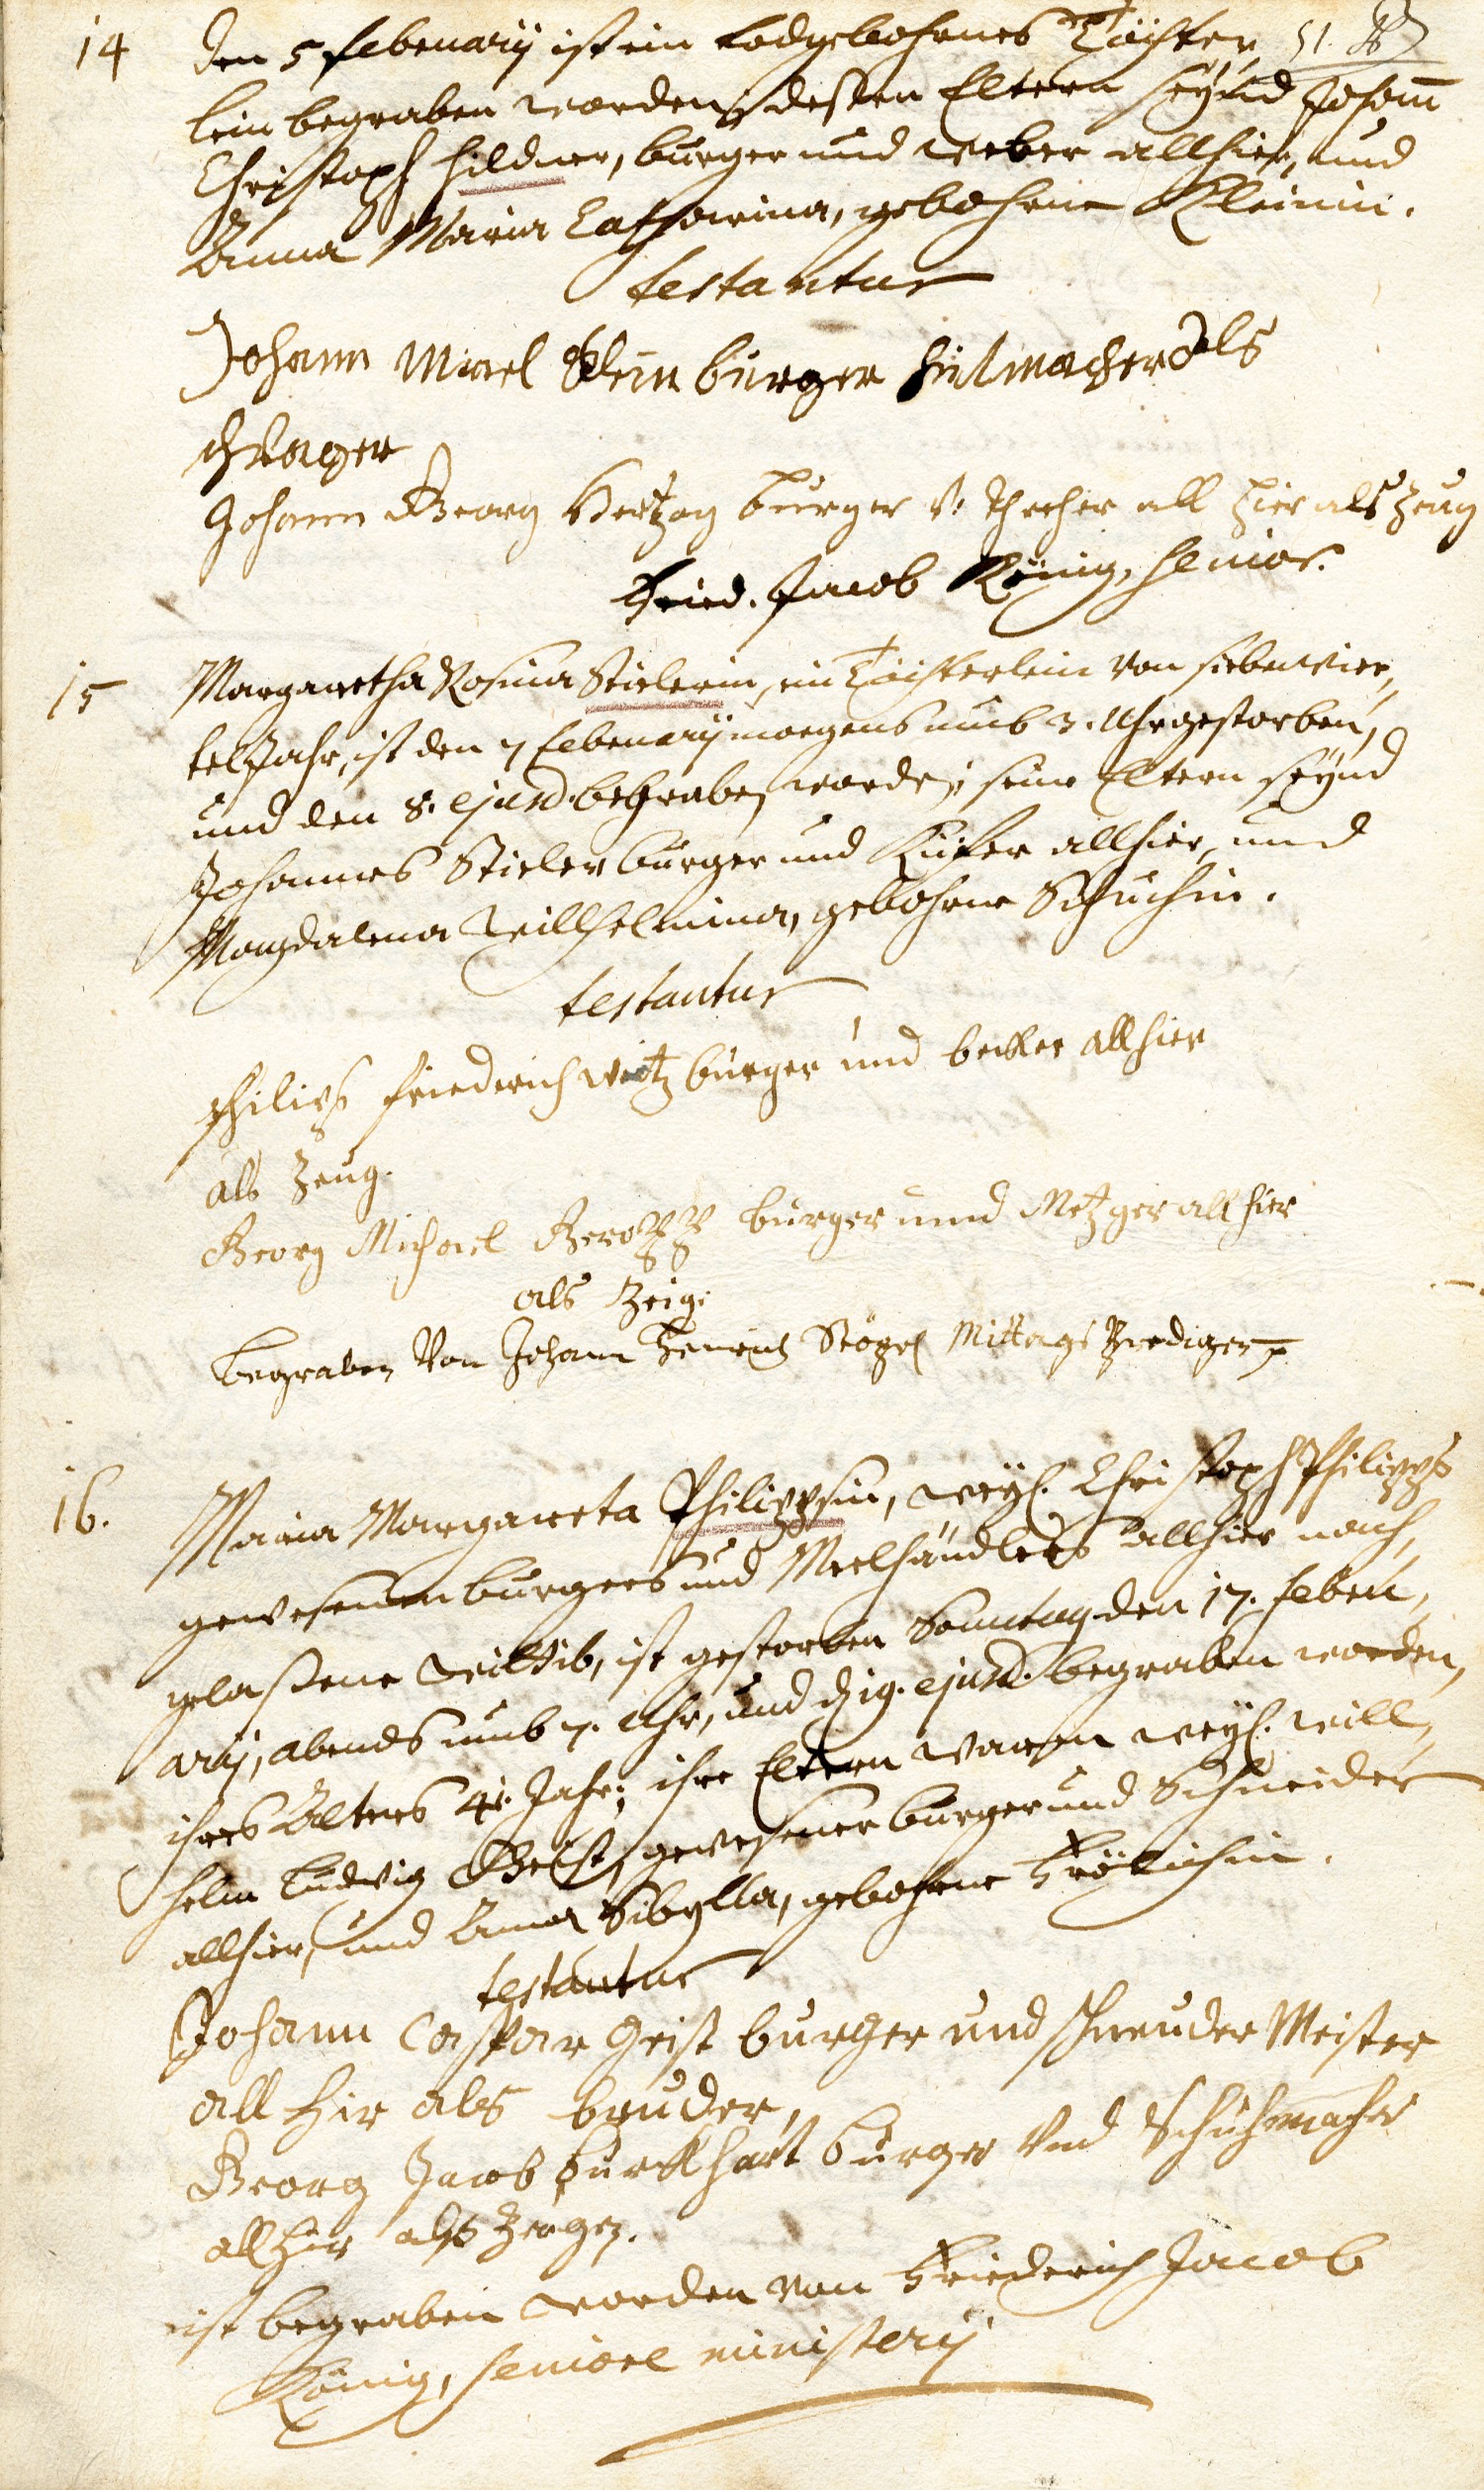 14 Den 5 Februarij ist ein todgebohrnes Töchter, 51.
lein begraben worden, dessen Eltern seynd Johann
Christoph Hildner, burger und weber allhier, und
Anna Maria Catharina, gebohrne Kleinin.
testantur
Johann Micael Klein burger Hutmacher als
schwager
Johann Georg Hertzog burger all hier als Zeug
Fried. Jacob König, Senior.
15 Margaretha Rosina Stielerin, ein Töchterlein von siebenvier,
tel Jahr, ist den 7 Februarij morgens umb 3. Uhr gestorben,
und den 8. ejusd. begraben worden; seine Eltern seynd
Johannes Stieler burger und Küfer allhier, und
Magdalena Willhelmina, gebohrne Schuchin.
testantur
Philips Friederich burger und becker allhier
als Zeug.
Georg Michael burger und Metzger allhier
als Zeig.
begraben von Johann Henrich Stögel Mittags Prediger
16. Maria Margareta Philippsin, weyl. Christoph Philipps
gewesenen burgers und Meelhändlers allhier nach,
gelassene Wittib, ist gestorben Sonntag den 17. Febru,
arij, abends umb 7. Uhr, und d. 19. ejusd. begraben worden,
ihres Alters 41. Jahr; ihre Eltern waren weyl. Will,
helm Ludwig Geist, gewesener burger und Schneider
allhier, und Anna Sibylla, gebohrne Frölichin.
testantur
Johann Caspar Geist burger und schneuder Meister
all hir als bruder,
Georg Jacob burckhart burger und Schuhmacher
allhir alß Zeugen.
ist begraben worden von Friederich Jacob
König, seniore ministerij